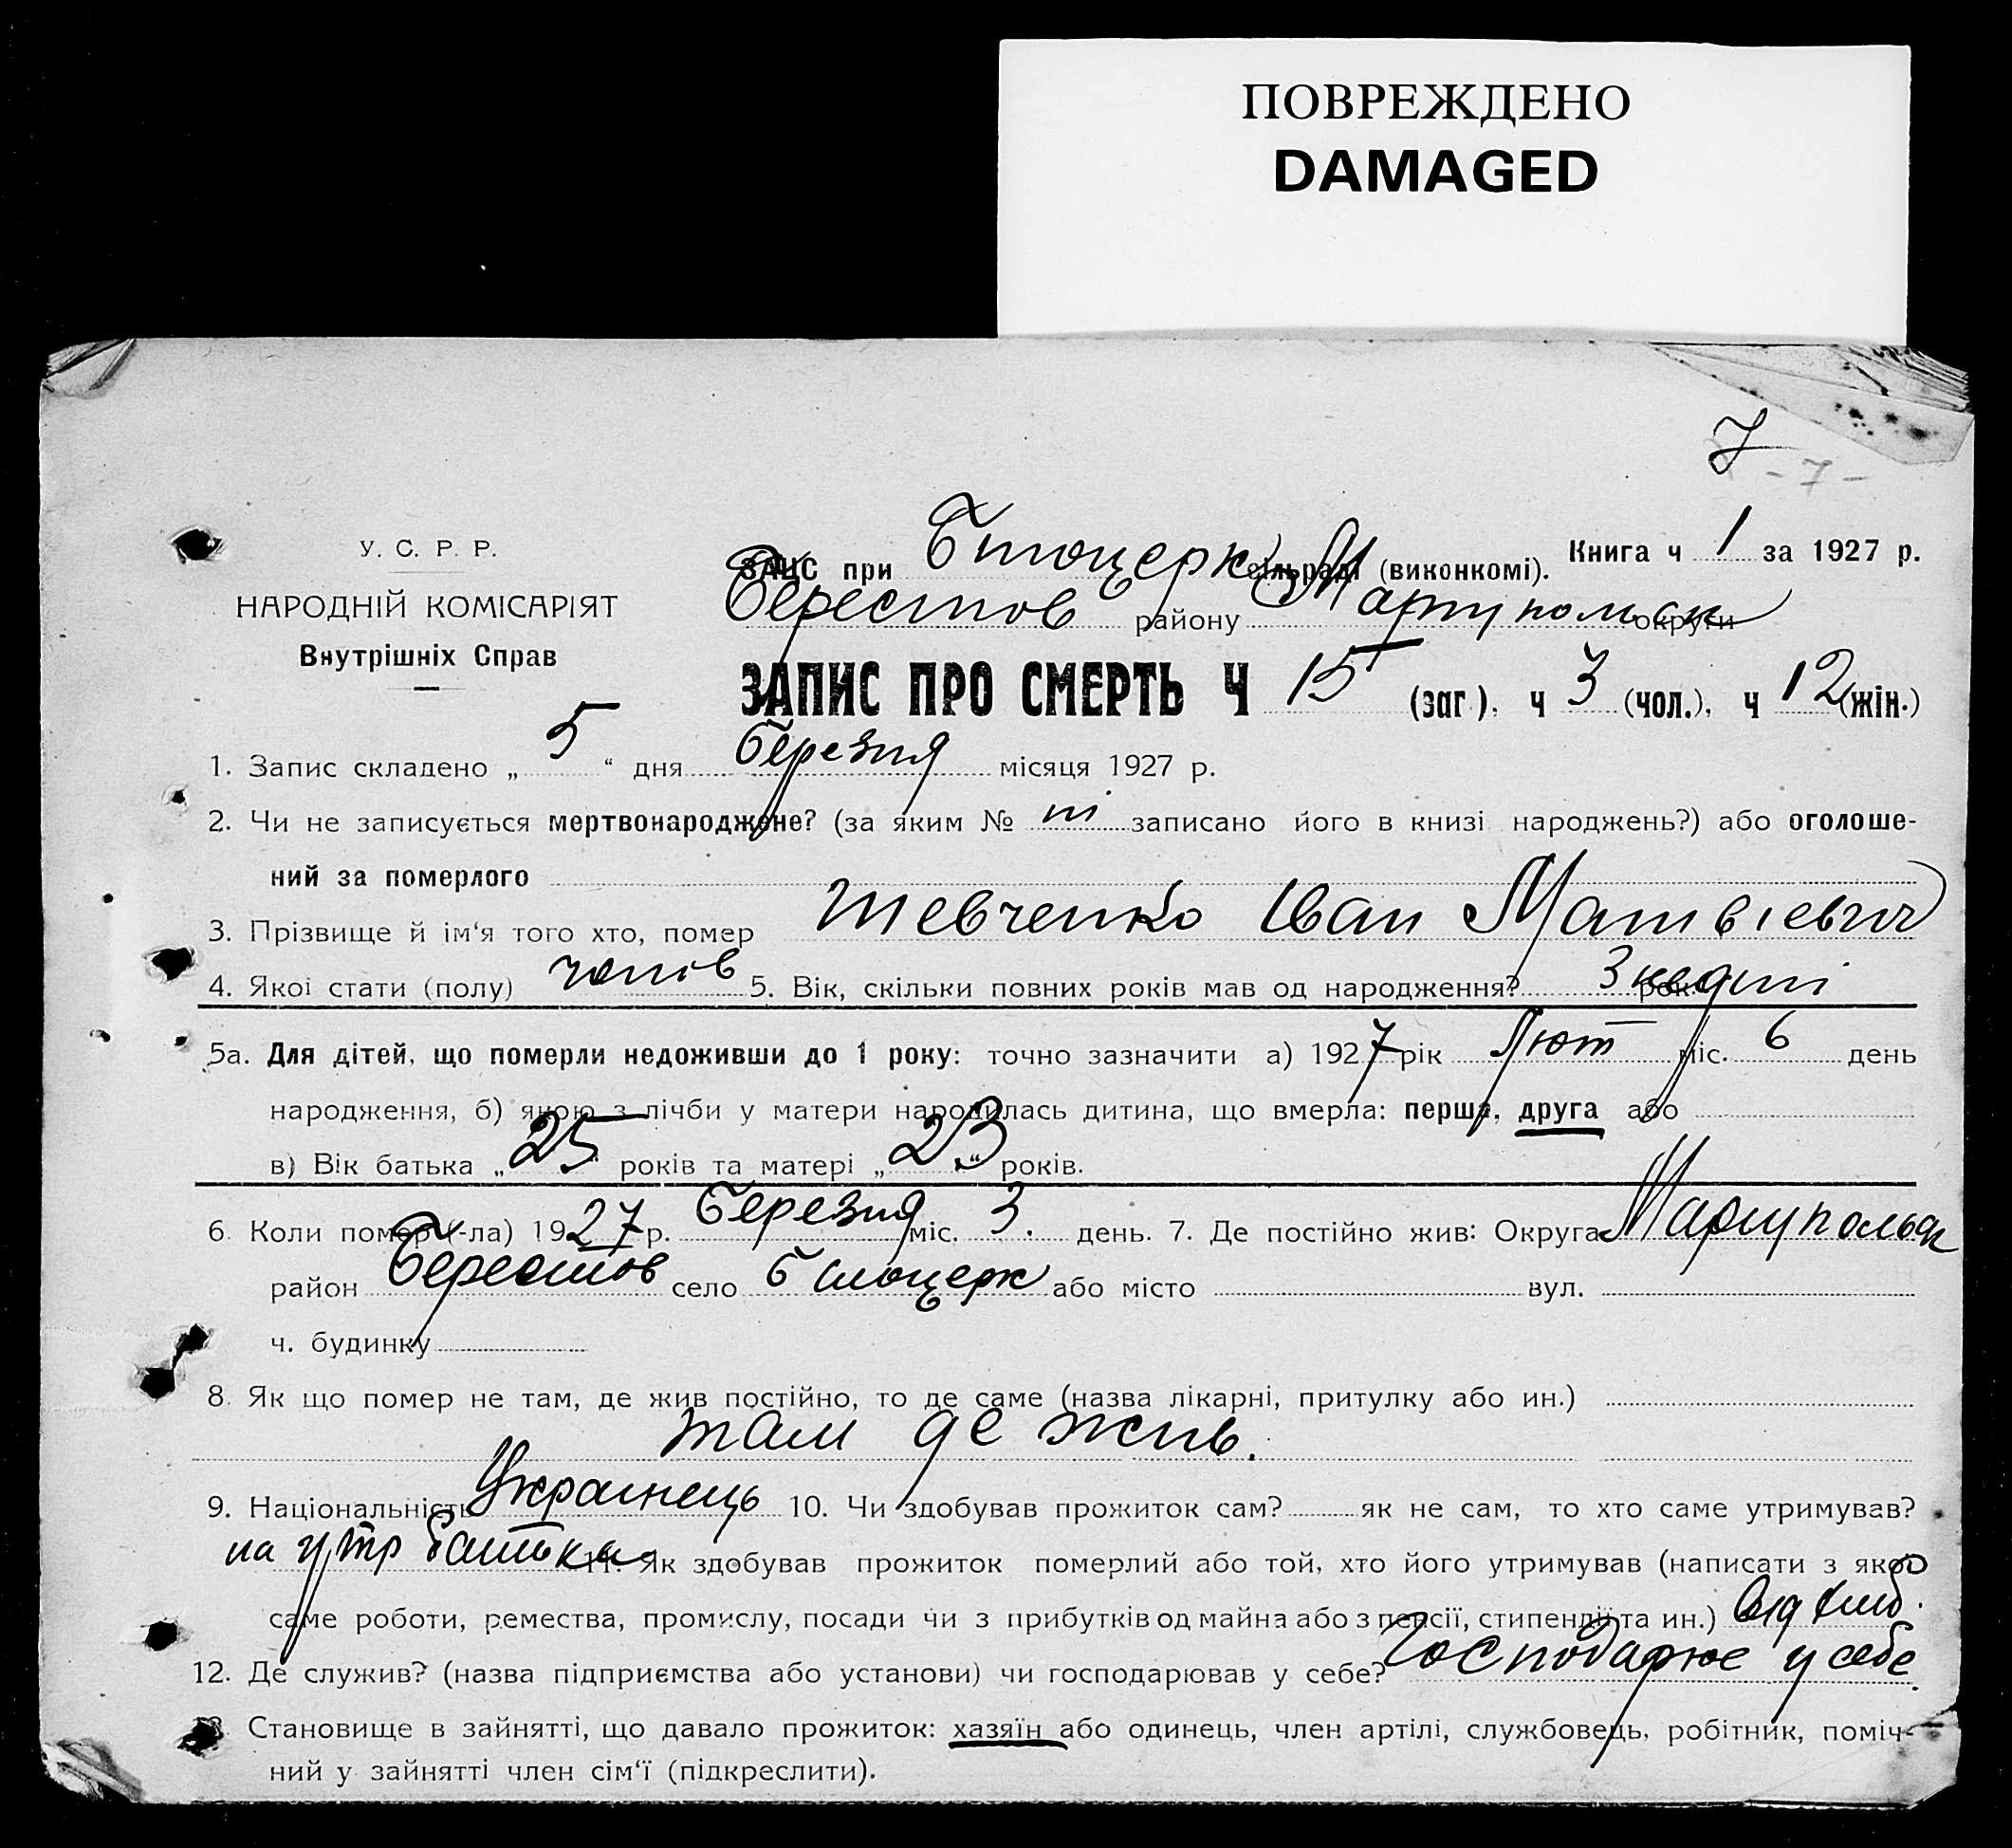 ПОВРЕЖДЕНО
DAMAGED
7
- 7 -
У. С. Р. Р.
НАРОДНІЙ КОМІСАРІЯТ
Внутрішніх Справ
ЗАЦС при Білоцерк сільраді (виконкомі). Книга ч 1 за 1927 р.
Берестов району Маріупольск округи
ЗАПИС ПРО СМЕРТЬ Ч 15 (заг.), ч 3 (чол.), ч 12 (жін.)
1. Запис складено „ 5 “ дня березня місяця 1927 р.
2. Чи не записується мертвонароджене? (за яким № ні записано його в книзі народжень?) або оголоше-
ний за померлого
3. Прізвище й ім‘я того хто, помер Шевченко Іван Матвієвич
4. Якої стати (полу) чолов 5. Вік, скільки повних років мав од народження? 3 неділі рок.
5а. Для дітей, що померли недоживши до 1 року: точно зазначити а) 1927 рік Лют міс. 6 день
народження, б) якою з лічби у матери народилась дитина, що вмерла: перша, друга або
в) Вік батька „ 25 “ років та матері „ 23 “ років.
6. Коли помер (-ла) 1927 р. Березня міс. 3. день. 7. Де постійно жив: Округа Маріупольск
район Берестов село Білоцерк або місто вул.
ч. будинку
8. Як що помер не там, де жив постійно, то де саме (назва лікарні, притулку або ин.)
там де жив.
9. Національність Українець 10. Чи здобував прожиток сам? як не сам, то хто саме утримував?
на утр батька 11. Як здобував прожиток померлий або той, хто його утримував (написати з якої
саме роботи, ремества, промислу, посади чи з прибутків од майна або з пенсії, стипендії та ин.) від хліб.
12. Де служив? (назва підприємства або установи) чи господарював у себе? Господарює у себе.
13. Становище в зайнятті, що давало прожиток: хазяїн або одинець, член артілі, службовець, робітник, поміч-
ний у зайнятті член сім‘ї (підкреслити).